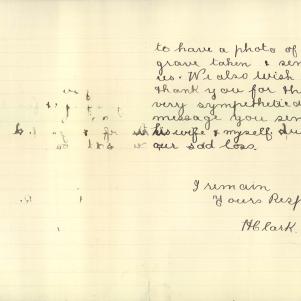 to have a photo of
grave taken & sen
us. We also wish
thank you for th
very sympathetic
message you sen
his wife & myself
our sad loss.
I remain
Yours Resp
H Clark.